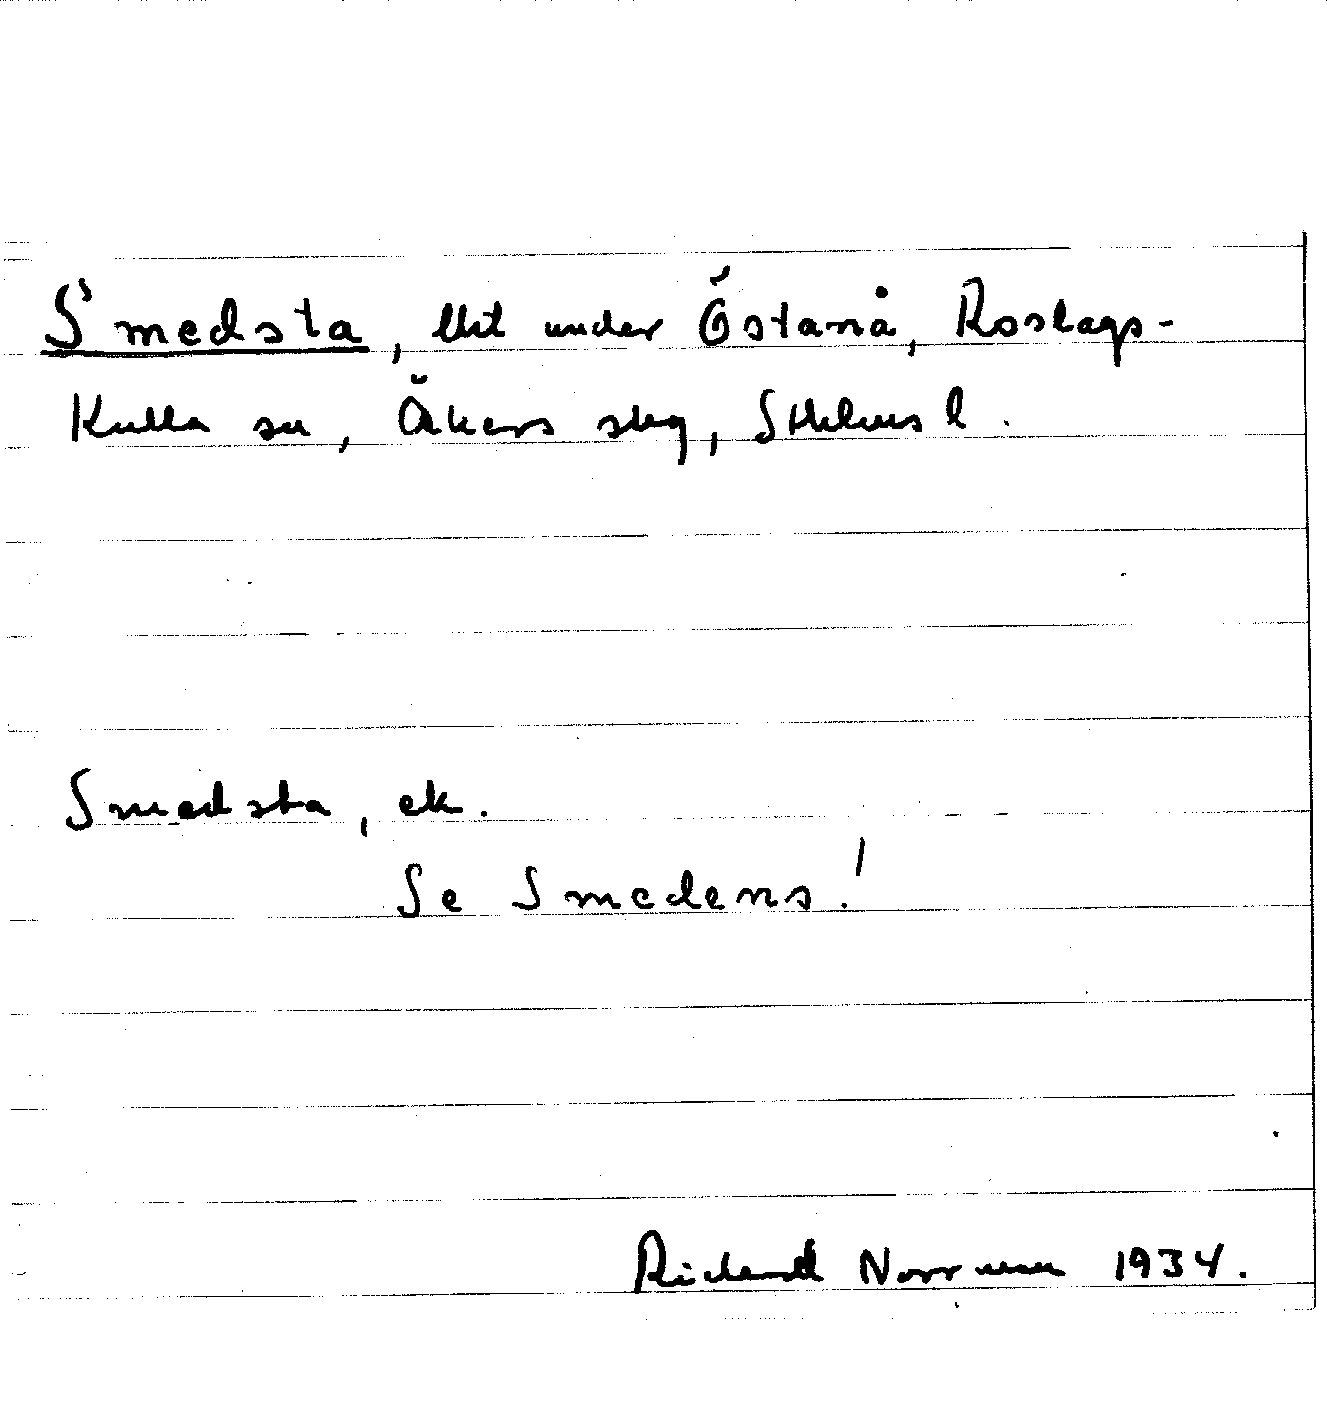 Smedsta, lht under Östanå, Roslags-
Kulla sn, Åkers skg, Sthlms l.
Smedsta, ek.
Se Smedens!
Richard Norrman 1934.